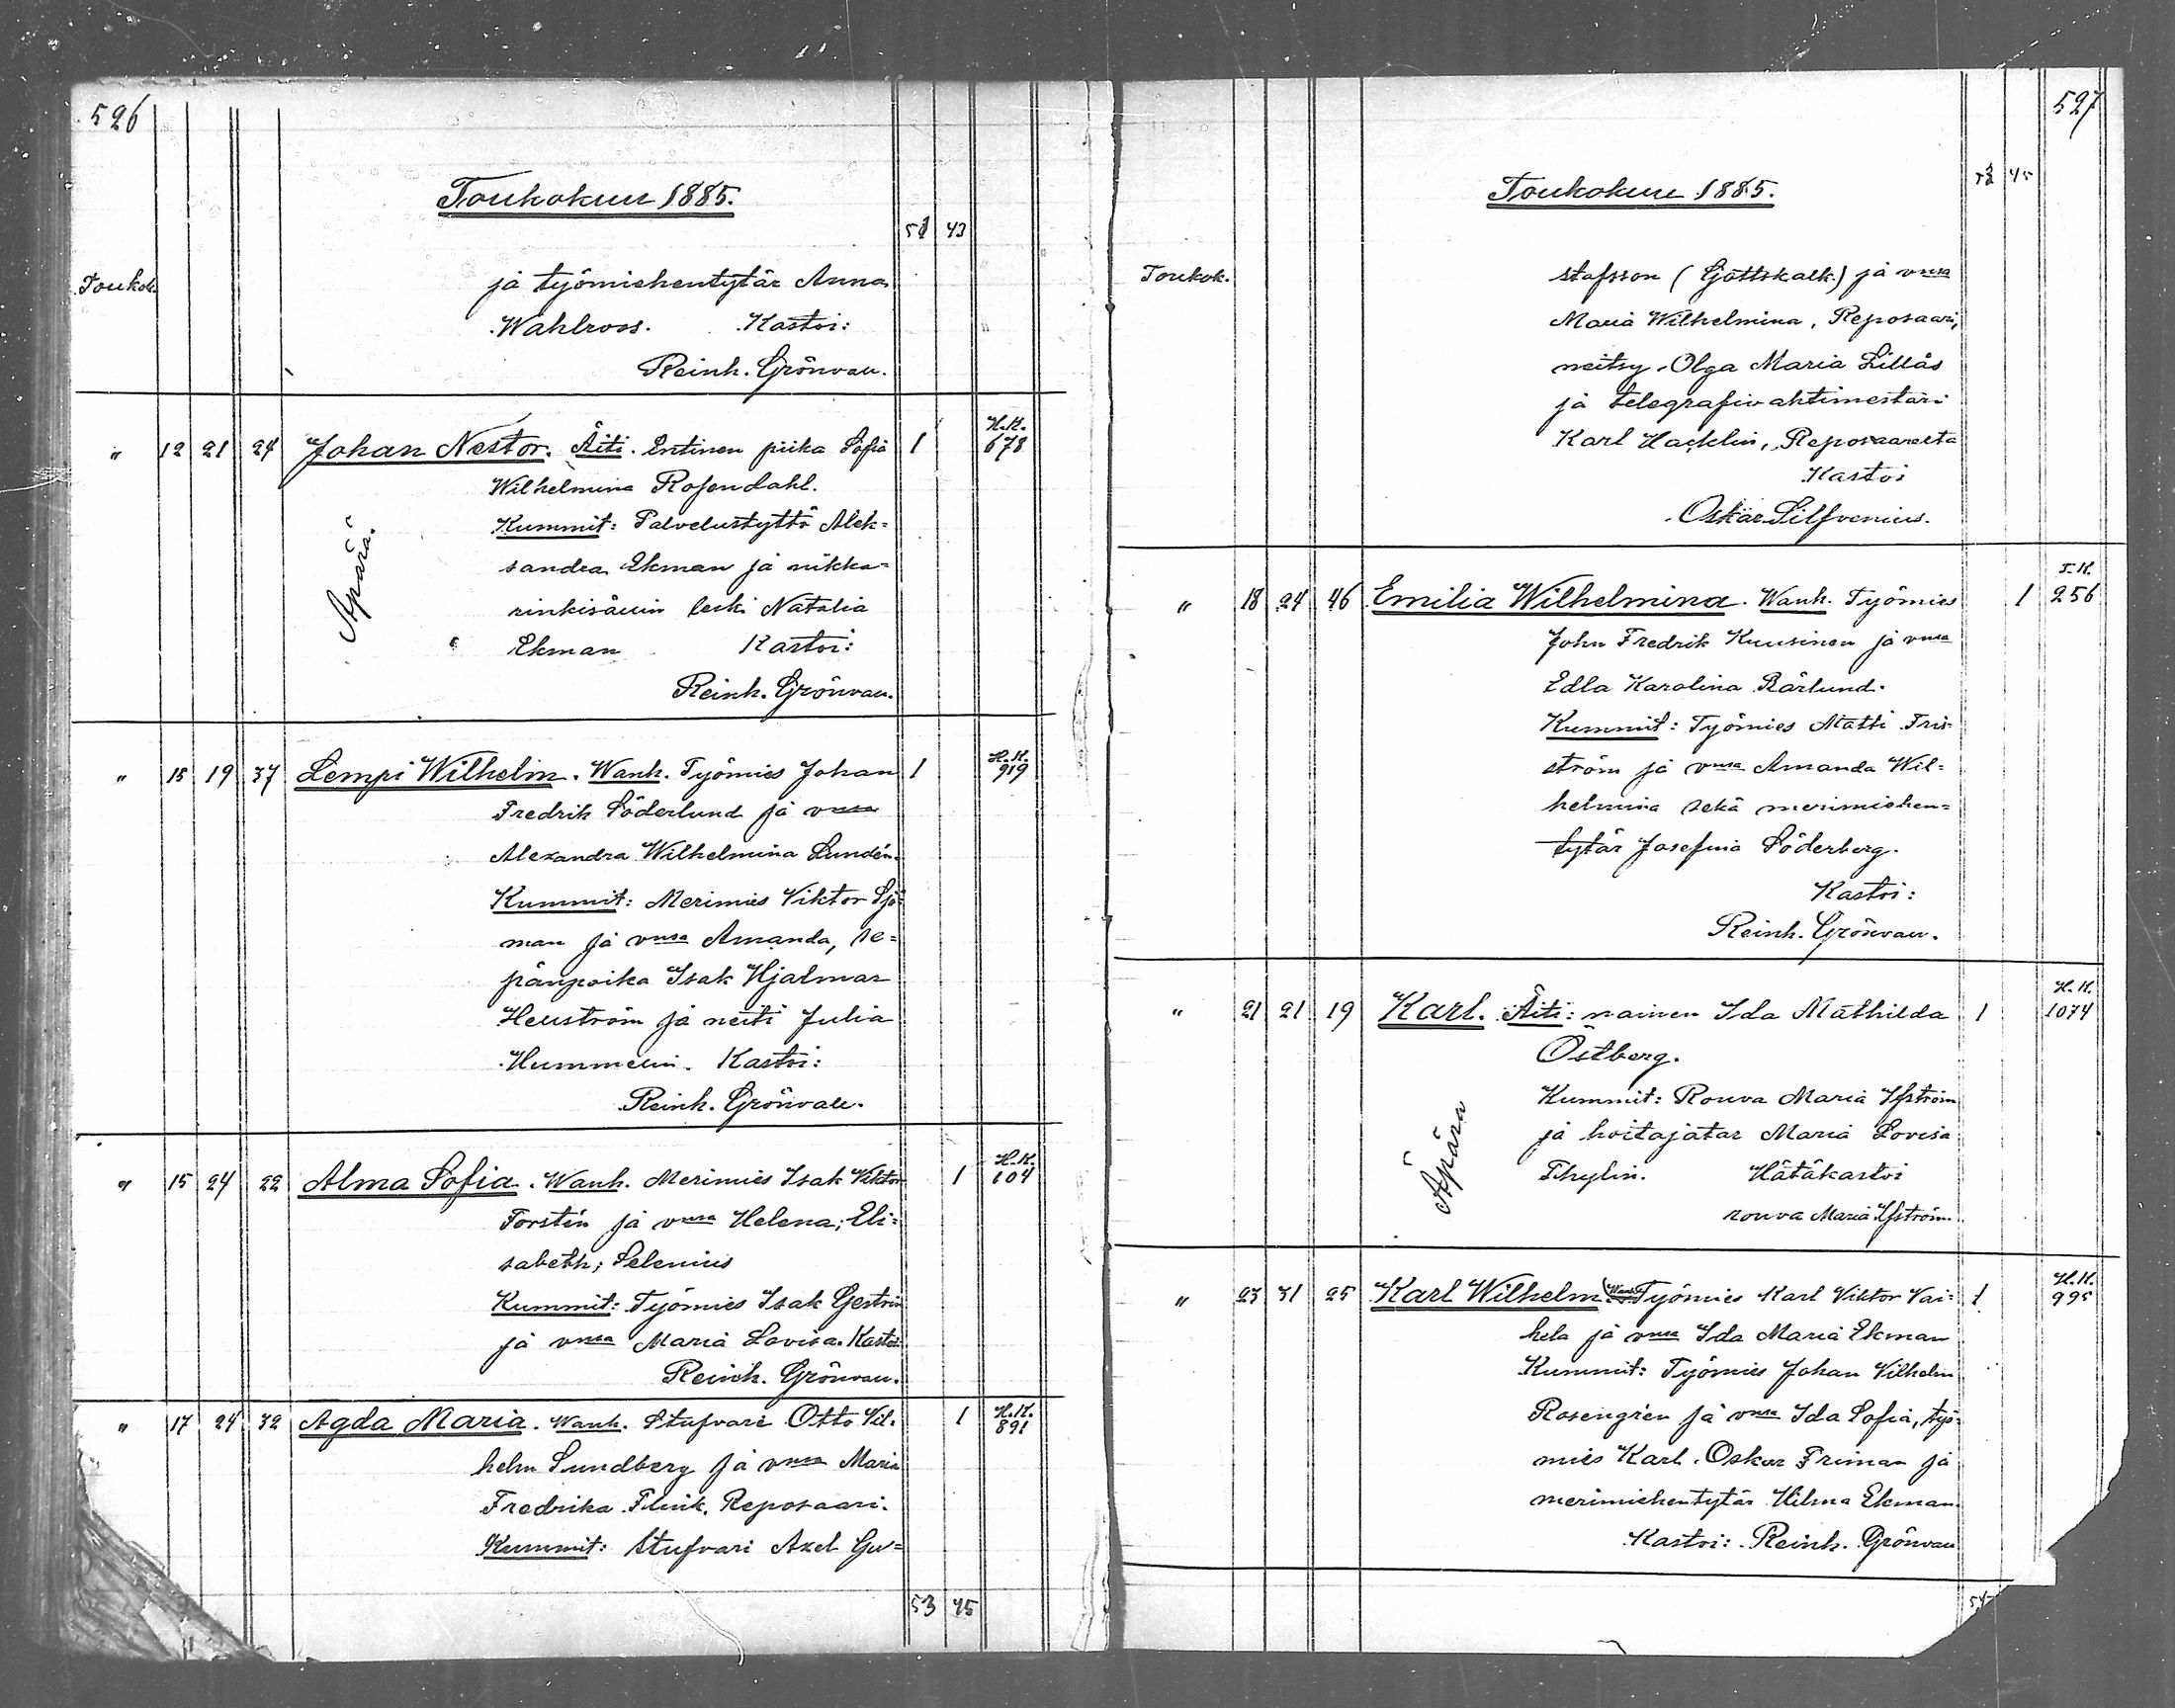 526
Toukokuu 1885.
51 43
Toukok. ja työmiehentytär Anna
Wahlroos. Kastoi:
Reinh. Grönvall.
" 12 21 24 Johan Nestor. Äiti. Entinen piika Sofia 1 H.K. 678
Wilhelmina Rosendahl.
Kummit: Palvelustyttö Alek=
sandra Ekman ja nikka=
rinkisällin leski Natalia
Ekman Kastoi:
Reinh. Grönvall.
Äpärä.
" 15 19 37 Lempi Wilhelm. Wanh. Työmies Johan 1 H.K. 919
Fredrik Söderlund ja vmsa
Alexandra Wilhelmina Lundén.
Kummit: Merimies Viktor Sjö=
man ja vmsa Amanda, se=
pänpoika Isak Hjalmar
Hellström ja neiti Julia
Hummelin. Kastoi:
Reinh. Grönvall.
" 15 24 22 Alma Sofia. Wanh. Merimies Isak Viktor 1 H.K. 104
Forstén ja vmsa Helena, Eli=
sabeth, Selenius
Kummit: Työmies Isak Gestrin
ja vmsa Maria Lovisa. Kastoi:
Reinh. Grönvall.
" 17 24 32 Agda Maria. Wanh. Stufvari Otto Vil= 1 H.K. 891
helm Sundberg ja vmsa Maria
Fredrika Flink, Reposaari.
Kummit: Stufvari Axel Gu=
53 45
527
Toukokuu 1885.
53 45
Toukok. stafsson (Gottskalk) ja vmsa
Maria Wilhelmina, Reposaari,
neitsy Olga Maria Lillås
ja telegrafivahtimestari
Karl Hacklin, Reposaarelta
Kastoi
Oskar Silfvenius.
" 18 24 46 Emilia Wilhelmina. Wanh. Työmies 1 T.K. 256
John Fredrik Kuusinen ja vmsa
Edla Karolina Bärlund.
Kummit: Työmies Matti Fri=
ström ja vmsa Amanda Wil=
helmina sekä merimiehen=
tytär Josefina Söderberg.
Kastoi:
Reinh. Grönvall.
" 21 21 19 Karl. Äiti: nainen Ida Mathilda 1 H.K. 1074
Östberg.
Kummit: Rouva Maria Ifström
ja hoitajatar Maria Lovisa
Thylin. Hätäkastoi
rouva Maria Ifström.
Äpärä
" 23 31 25 Karl Wilhelm (Wanh.) Työmies Karl Viktor Vai= 1 H.K. 995
hela ja vmsa Ida Maria Ekman
Kummit: Työmies Johan Vilhelm
Rosengrén ja vmsa Ida Sofia, työ=
mies Karl Oskar Friman ja
merimiehentytär Hilma Ekman
Kastoi: Reinh. Grönvall